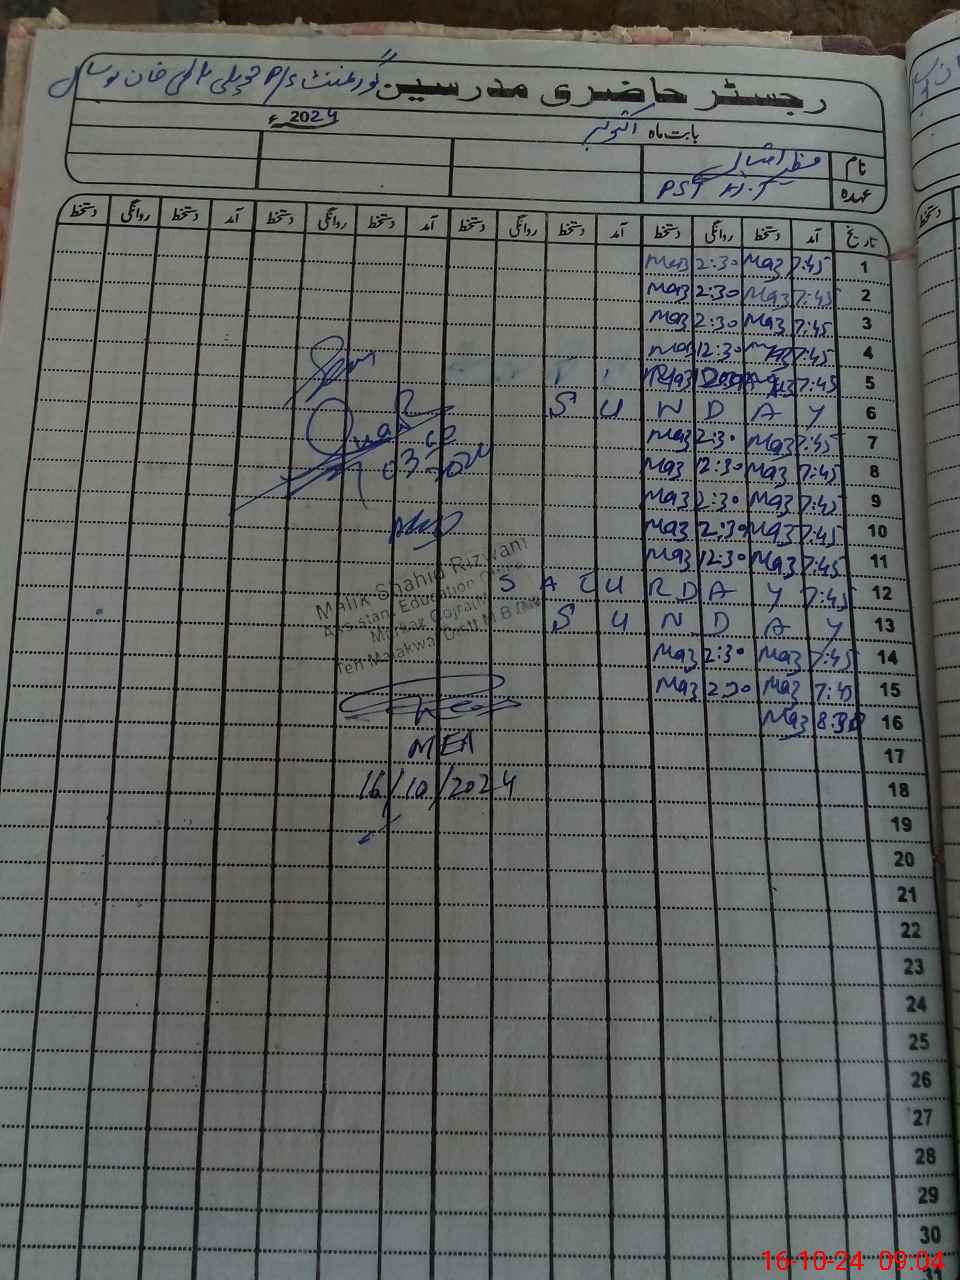 رجسٹر حاضری مدرسین گورنمنٹ P/S حویلی خان
بابت ماہ اکتوبر 2024ء
نام
عہدہ PST H.T
تاریخ آمد دستخط روانگی دستخط آمد دستخط روانگی دستخط آمد دستخط روانگی دستخط آمد دستخط روانگی دستخط
1 7:45 Maz 2:30 Maz
2 7:45 Maz 2:30 Maz
3 7:45 Maz 2:30 Maz
4 7:45 12:30 Maz
5 7:45 Maz
6 SUNDAY
7 7:45 Maz 2:30 Maz
8 7:45 Maz 2:30 Maz
9 7:45 Maz 2:30 Maz
10 7:45 Maz 2:30 Maz
11 7:45 Maz 12:30 Maz
12 7:45 SATURDAY
13 SUNDAY
14 7:45 Maz 2:30 Maz
15 7:45 Maz 2:30 Maz
16 8:30 Maz
17
18
19
20
21
22
23
24
25
26
27
28
29
30
Malik Shahid Rizwan
Assistant Education Officer
Markaz Gojra
Teh Malakwal Distt M.B.Din
MEA
16/10/2024
16-10-24 09:04